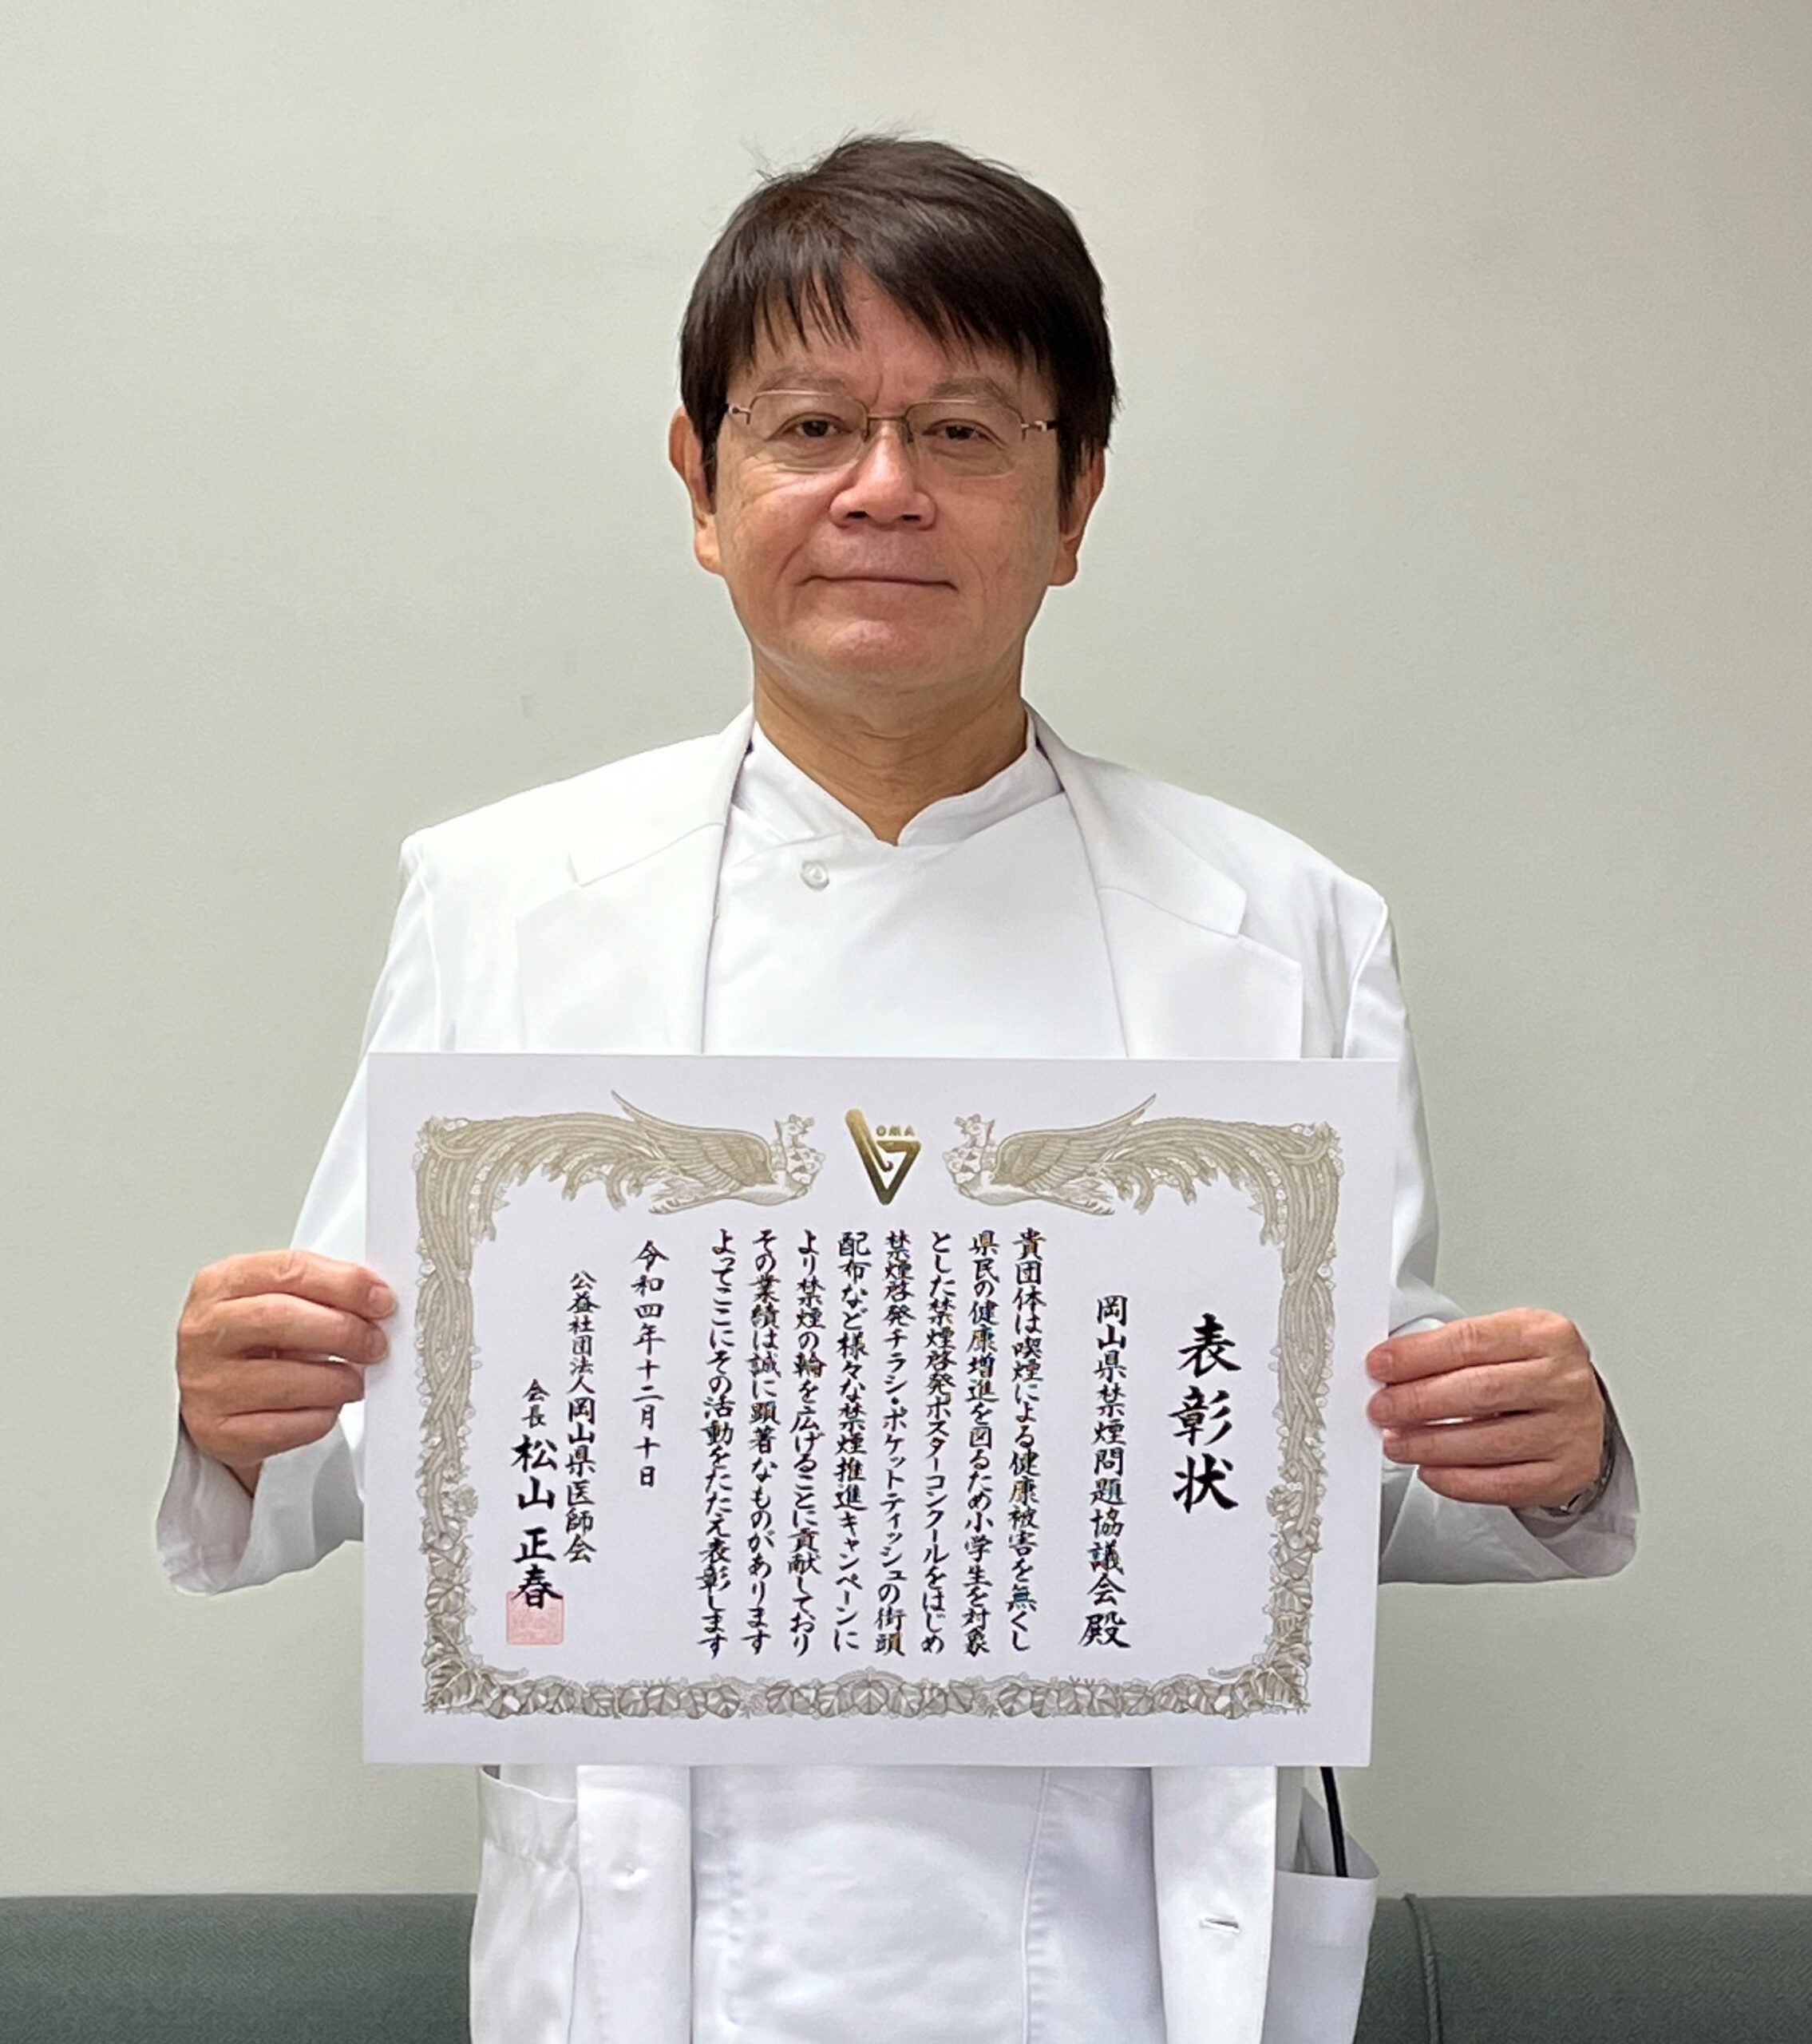 表彰状
岡山県禁煙問題協議会殿
貴団体は喫煙による健康被害を無くし
県民の健康増進を図るため小学生を対象
とした禁煙啓発ポスターコンクールをはじめ
禁煙啓発チラシ・ポケットティッシュの街頭
配布など様々な禁煙推進キャンペーンに
より禁煙の輪を広げることに貢献しており
その業績は誠に顕著なものがあります
よってここにその活動をたたえ表彰します
令和四年十二月十日
公益社団法人岡山県医師会
会長 松山正春